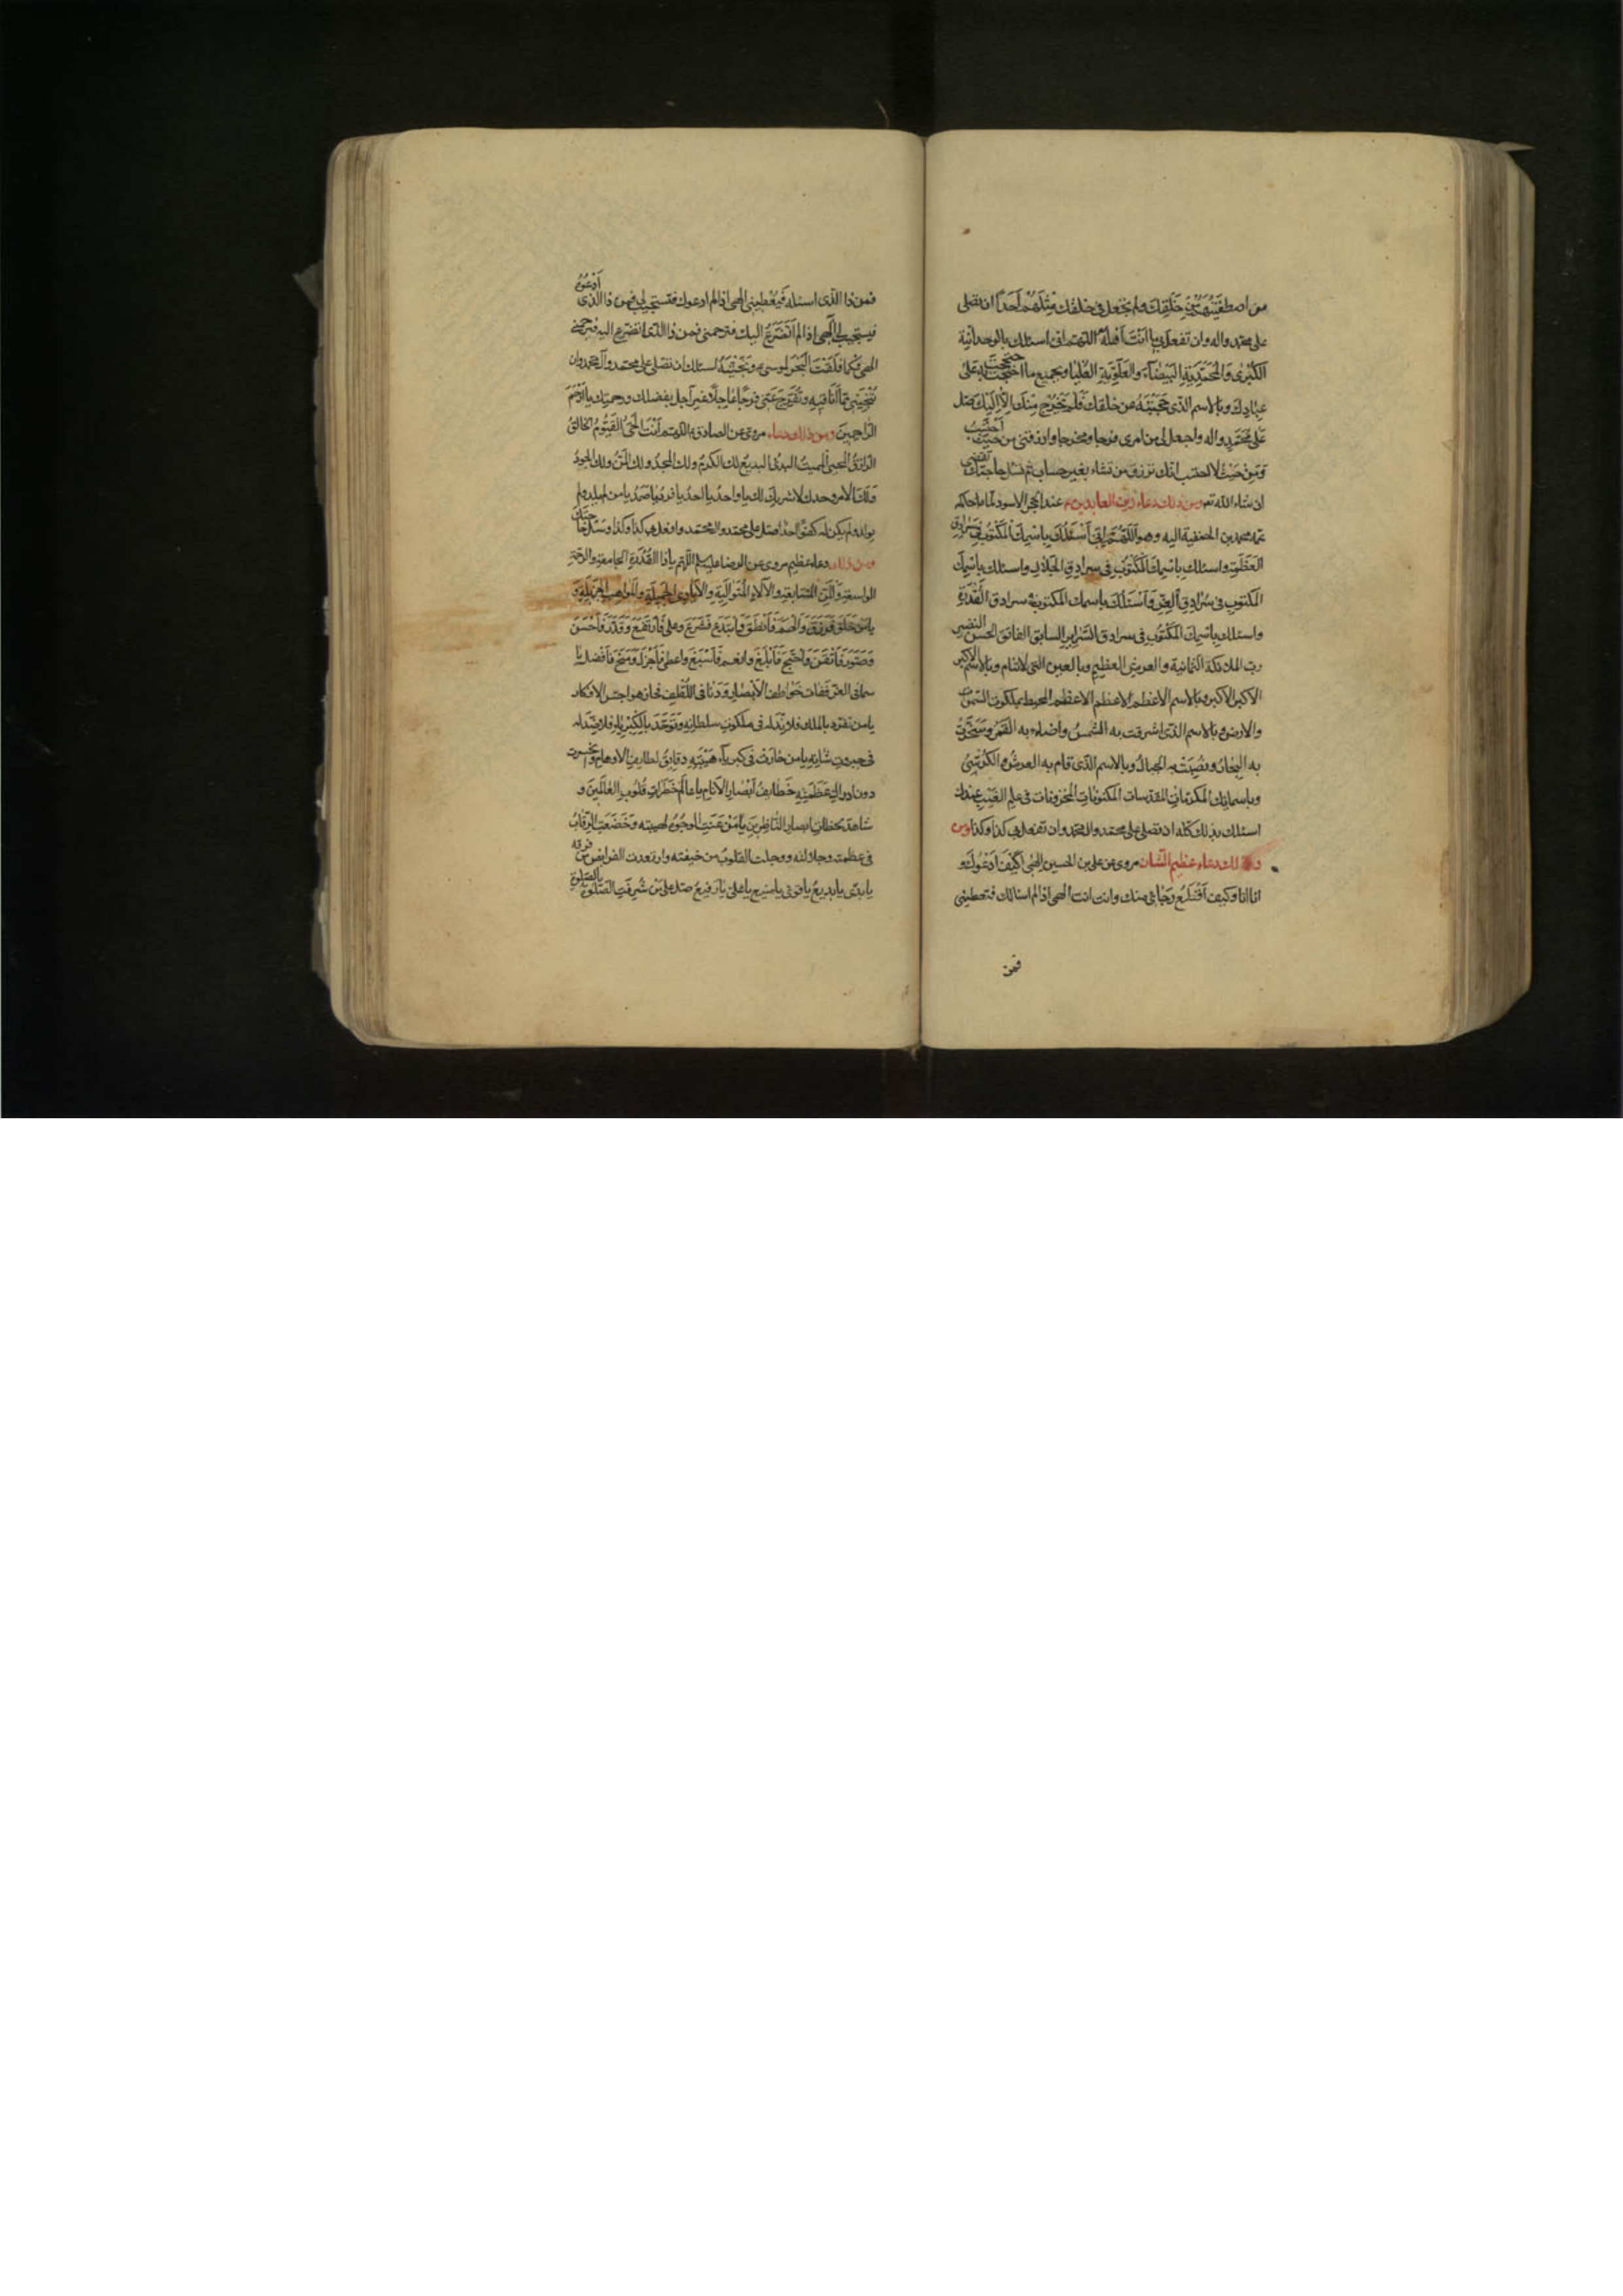 من اصطفيتهم من خلقك ولم تجعل فى خلقك مثلهم احدا ان تصلى
على محمد واله وان تفعل بى ما انت اهله اللهم انى اسئلك بالوحدانية
الكبرى والمحمدية البيضاء والعلوية العليا وبجميع ما احتججت به على
عبادك وبالاسم الذى حجبته عن خلقك فلم يخرج منك الا اليك صل
على محمد واله واجعل لى من امرى فرجا ومخرجا وارزقنى من حيث احتسب
ومن حيث لا احتسب انك ترزق من تشاء بغير حساب ثم تسئل حاجتك تقضى
ان شاء الله تع ومن ذلك دعاء زين العابدين ع عند الحجر الاسود لما حاكمه
عمه محمد بن الحنفية اليه وهو اللهم انى اسئلك باسمك المكتوب فى سرادق
العظمة واسئلك باسمك المكتوب فى سرادق الجلال واسئلك باسمك
المكتوب فى سرادق العز واسئلك باسمك المكتوب فى سرادق القدرة
واسئلك باسمك المكتوب فى سرادق السراير السابق الفائق الحسن النضير
رب الملائكة الثمانية والعرش العظيم وبالعين التى لا تنام وبالاسم الاكبر
الاكبر الاكبر وبالاسم الاعظم الاعظم الاعظم المحيط بملكوت السموات
والارض وبالاسم الذى اشرقت به الشمس واضاء به القمر وسجرت
به البحار ونصبت به الجبال وبالاسم الذى قام به العرش والكرسى
وباسمائك المكرمات المقدسات المكنونات المخزونات فى علم الغيب عندك
اسئلك بذلك كله ان تصلى على محمد وال محمد وان تفعل بى كذا وكذا ومن
ذلك دعاء عظيم الشان مروى عن على بن الحسين الهى كيف ادعوك و
انا انا وكيف اقطع رجائى منك وانت انت الهى اذا لم اسالك فتعطينى
فمن
فمن ذا الذى اسئله فيعطينى الهى اذا لم ادعوك فتستجيب لى فمن ذا الذى ادعوه
فيستجيب لى الهى اذا لم اتضرع اليك فترحمنى فمن ذا الذى اتضرع اليه فيرحمنى
الهى فكما فلقت البحر لموسى ع ونجيته اسئلك ان تصلى على محمد وآل محمد وان
تنجينى مما انا فيه وتفرج عنى فرجا عاجلا غير آجل بفضلك ورحمتك يا ارحم
الراحمين ومن ذلك دعاء مروى عن الصادق ع اللهم انت الحى القيوم الخالق
الرازق المحيى المميت البدئ البديع لك الكرم ولك المجد ولك المن ولك الجود
ولك الامر وحدك لا شريك لك يا واحد يا احد يا فرد يا صمد يا من لم يلد ولم
يولد ولم يكن له كفوا احد صل على محمد وال محمد وافعل بى كذا وكذا وتسئل حاجتك
ومن ذلك دعاء عظيم مروى عن الرضا عليه السلم اللهم يا ذا القدرة الجامعة والرحمة
الواسعة والمنن المتتابعة والآلاء المتوالية والايادى الجميلة والمواهب الجزيلة و
يا من خلق فرزق والهم فانطق وابتدع فشرع وعلى فارتفع وقدر فاحسن
وصور فاتقن واحتج فابلغ وانعم فاسبغ واعطى فاجزل ومنح فافضل يا من
سما فى العز ففات خواطف الابصار ودنا فى اللطف فجاز هواجس الافكار
يا من تفرد بالملك فلا ند له فى ملكوت سلطانه وتوحد بالكبرياء فلا ضد له
فى جبروت شانه يا من حارت فى كبرياء هيبته دقائق لطايف الاوهام وانحسرت
دون ادراك عظمته خطايف ابصار الانام يا عالم خطرات قلوب العالمين و
شاهد لحظات ابصار الناظرين يا من عنت الوجوه لهيبته وخضعت الرقاب
فى عظمته وجلالته ووجلت القلوب من خيفته وارتعدت الفرايص من فرقه
يا بدئ يا بديع يا قوى يا منيع يا على يا رفيع صل على من شرفت الصلوة بالصلوة